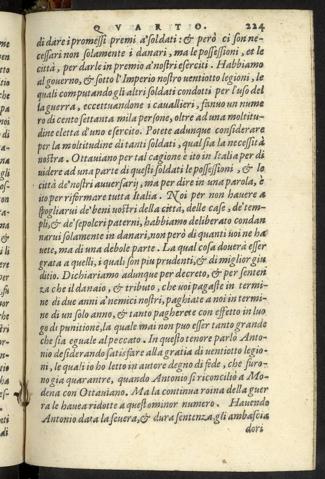 QVARTO. 224
di dare i promessi premi à soldati: & però ci son ne-
cessari non solamente i danari, ma le possessioni, et le
città, per darle in premio à nostri eserciti. Habbiamo
al gouerno, & sotto l'Imperio nostro uentiotto legioni, le
quali computando gli altri soldati condotti per l'uso del
la guerra, eccettuandone i cauallieri, fanno un nume
ro di cento settanta mila persone, oltre ad una moltitu-
dine eletta d'uno esercito. Potete adunque considerare
per la moltitudine di tanti soldati, qual sia la necessità
nostra. Ottauiano per tal cagione è ito in Italia per di
uidere ad una parte di questi soldati le possessioni, & le
città de nostri auuersarij, ma per dire in una parola, è
ito per riformare tutta Italia. Noi per non hauere a
spogliarui de' beni uostri della città, delle case, de' tem-
pli, & de' sepolcri paterni, habbiamo deliberato condan
narui solamente in danari, non però di quanti uoi ne ha
uete, ma di una debole parte. La qual cosa douerà esser
grata a quelli, i quali son piu prudenti, & di miglior giu
ditio. Dichiariamo adunque per decreto, & per senten
za che il danaio, & tributo, che uoi pagaste in termi-
ne di due anni a' nemici nostri, paghiate a noi in termi-
ne di un solo anno, & tanto pagherete con effetto in luo
go di punitione, la quale mai non puo esser tanto grande
che sia eguale al peccato. In questo tenore parlò Anto-
nio desiderando satisfare alla gratia di uentiotto legio-
ni, le quali io ho letto in autore degno di fede, che furo-
no gia quarantre, quando Antonio si riconciliò a Mo-
dena con Ottauiano. Ma la continua roina della guer
ra le hauea ridotte a questo minor numero. Hauendo
Antonio data la seuera, & dura sentenza, gli ambascia
dori